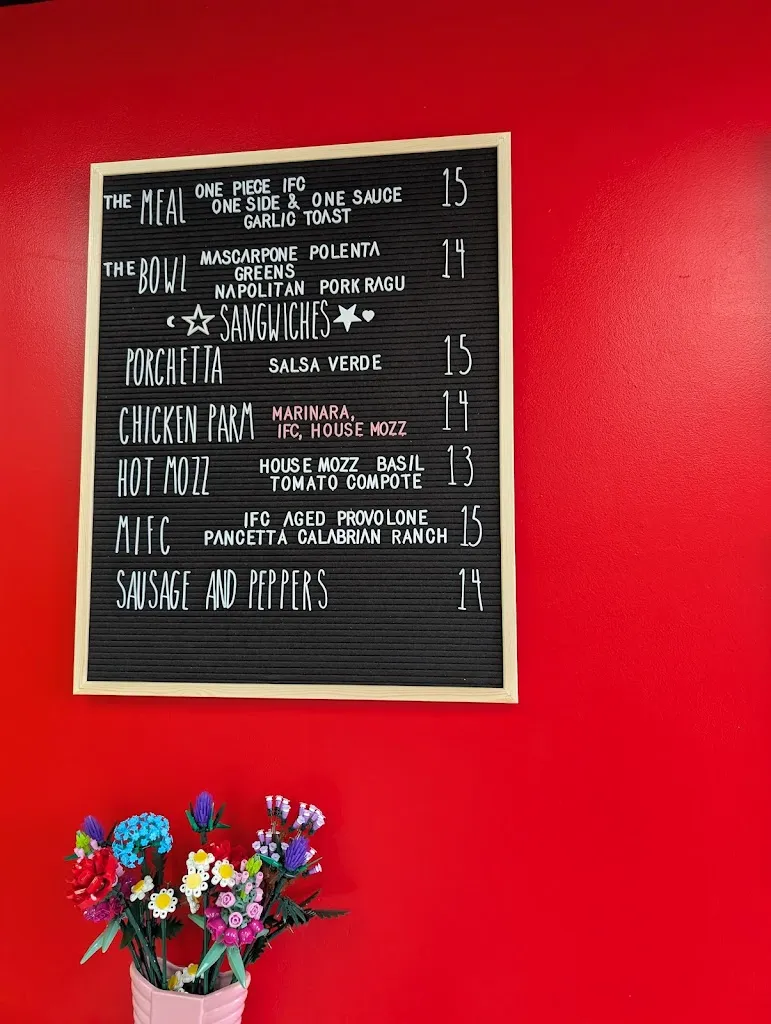 THE MEAL ONE PIECE IFC 15
ONE SIDE & ONE SAUCE
GARLIC TOAST
THE BOWL MASCARPONE POLENTA 14
GREENS
NAPOLITAN PORK RAGU
SANGWICHES
PORCHETTA SALSA VERDE 15
CHICKEN PARM MARINARA, 14
IFC, HOUSE MOZZ
HOT MOZZ HOUSE MOZZ BASIL 13
TOMATO COMPOTE
MIFC IFC AGED PROVOLONE 15
PANCETTA CALABRIAN RANCH
SAUSAGE AND PEPPERS 14